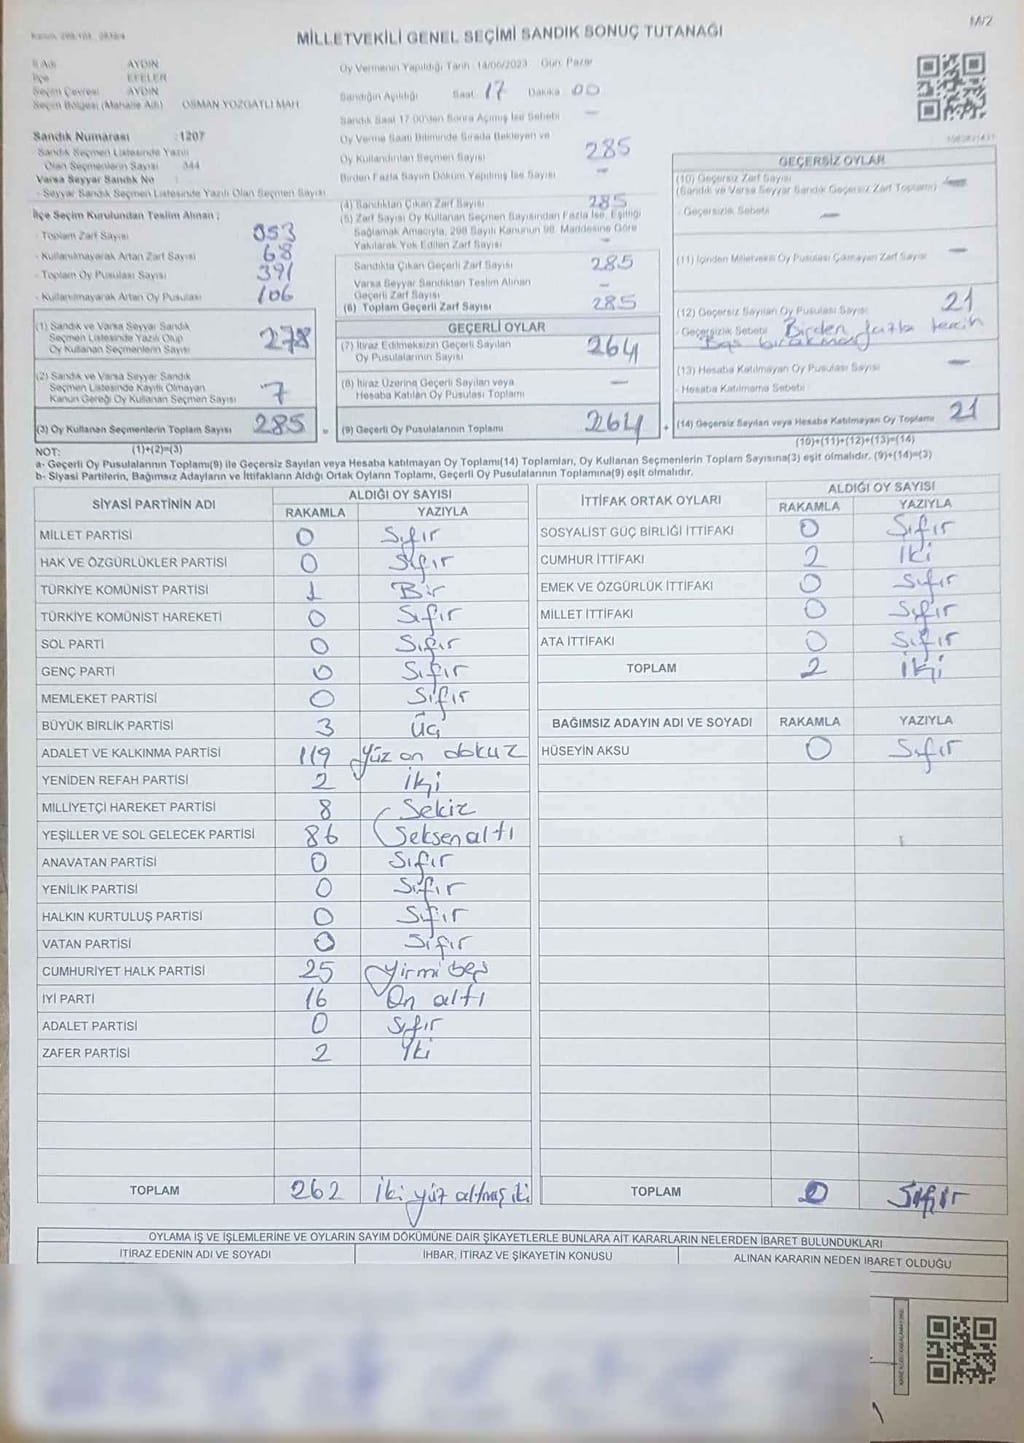 M/2
MİLLETVEKİLİ GENEL SEÇİMİ SANDIK SONUÇ TUTANAĞI
İl Adı AYDIN
İlçe EFELER
Seçim Çevresi AYDIN
Seçim Bölgesi (Mahalle Adı) OSMAN YOZGATLI MAH.
Sandık Numarası : 1207
- Sandık Seçmen Listesinde Yazılı
Olan Seçmenlerin Sayısı : 344
Varsa Seyyar Sandık No
- Seyyar Sandık Seçmen Listesinde Yazılı Olan Seçmen Sayısı
İlçe Seçim Kurulundan Teslim Alınan ;
- Toplam Zarf Sayısı 353
- Kullanılmayarak Artan Zarf Sayısı 68
- Toplam Oy Pusulası Sayısı 391
- Kullanılmayarak Artan Oy Pusulası 106
(1) Sandık ve Varsa Seyyar Sandık
Seçmen Listesinde Yazılı Olup
Oy Kullanan Seçmenlerin Sayısı 278
(2) Sandık ve Varsa Seyyar Sandık
Seçmen Listesinde Kayıtlı Olmayan
Kanun Gereği Oy Kullanan Seçmen Sayısı 7
(3) Oy Kullanan Seçmenlerin Toplam Sayısı 285
Oy Vermenin Yapıldığı Tarih : 14/05/2023 Gün: Pazar
Sandığın Açıldığı Saat 17 Dakika 00
Sandık Saat 17:00'den Sonra Açılmış İse Sebebi —
Oy Verme Saati Bitiminde Sırada Bekleyen ve
Oy Kullandırılan Seçmen Sayısı 285
Birden Fazla Sayım Döküm Yapılmış İse Sayısı —
(4) Sandıktan Çıkan Zarf Sayısı 285
(5) Zarf Sayısı Oy Kullanan Seçmen Sayısından Fazla İse, Eşitliği
Sağlamak Amacıyla, 298 Sayılı Kanunun 98. Maddesine Göre
Yakılarak Yok Edilen Zarf Sayısı —
Sandıkta Çıkan Geçerli Zarf Sayısı 285
Varsa Seyyar Sandıktan Teslim Alınan
Geçerli Zarf Sayısı —
(6) Toplam Geçerli Zarf Sayısı 285
GEÇERLİ OYLAR
(7) İtiraz Edilmeksizin Geçerli Sayılan
Oy Pusulalarının Sayısı 264
(8) İtiraz Üzerine Geçerli Sayılan veya
Hesaba Katılan Oy Pusulası Toplamı —
= (9) Geçerli Oy Pusulalarının Toplamı 264
GEÇERSİZ OYLAR
(10) Geçersiz Zarf Sayısı
(Sandık ve Varsa Seyyar Sandık Geçersiz Zarf Toplamı) —
- Geçersizlik Sebebi —
(11) İçinden Milletvekili Oy Pusulası Çıkmayan Zarf Sayısı —
(12) Geçersiz Sayılan Oy Pusulası Sayısı 21
- Geçersizlik Sebebi Birden fazla tercih
Boş bırakma
(13) Hesaba Katılmayan Oy Pusulası Sayısı —
- Hesaba Katılmama Sebebi
+ (14) Geçersiz Sayılan veya Hesaba Katılmayan Oy Toplamı 21
NOT: (1)+(2)=(3) (10)+(11)+(12)+(13)=(14)
a- Geçerli Oy Pusulalarının Toplamı(9) ile Geçersiz Sayılan veya Hesaba katılmayan Oy Toplamı(14) Toplamları, Oy Kullanan Seçmenlerin Toplam Sayısına(3) eşit olmalıdır. (9)+(14)=(3)
b- Siyasi Partilerin, Bağımsız Adayların ve İttifakların Aldığı Ortak Oyların Toplamı, Geçerli Oy Pusulalarının Toplamına(9) eşit olmalıdır.
SİYASİ PARTİNİN ADI ALDIĞI OY SAYISI
RAKAMLA YAZIYLA
MİLLET PARTİSİ 0 Sıfır
HAK VE ÖZGÜRLÜKLER PARTİSİ 0 Sıfır
TÜRKİYE KOMÜNİST PARTİSİ 1 Bir
TÜRKİYE KOMÜNİST HAREKETİ 0 Sıfır
SOL PARTİ 0 Sıfır
GENÇ PARTİ 0 Sıfır
MEMLEKET PARTİSİ 0 Sıfır
BÜYÜK BİRLİK PARTİSİ 3 Üç
ADALET VE KALKINMA PARTİSİ 119 Yüz on dokuz
YENİDEN REFAH PARTİSİ 2 İki
MİLLİYETÇİ HAREKET PARTİSİ 8 Sekiz
YEŞİLLER VE SOL GELECEK PARTİSİ 86 Seksen altı
ANAVATAN PARTİSİ 0 Sıfır
YENİLİK PARTİSİ 0 Sıfır
HALKIN KURTULUŞ PARTİSİ 0 Sıfır
VATAN PARTİSİ 0 Sıfır
CUMHURİYET HALK PARTİSİ 25 Yirmi beş
İYİ PARTİ 16 On altı
ADALET PARTİSİ 0 Sıfır
ZAFER PARTİSİ 2 İki
TOPLAM 262 İki yüz altmış iki
İTTİFAK ORTAK OYLARI ALDIĞI OY SAYISI
RAKAMLA YAZIYLA
SOSYALİST GÜÇ BİRLİĞİ İTTİFAKI 0 Sıfır
CUMHUR İTTİFAKI 2 İki
EMEK VE ÖZGÜRLÜK İTTİFAKI 0 Sıfır
MİLLET İTTİFAKI 0 Sıfır
ATA İTTİFAKI 0 Sıfır
TOPLAM 2 İki
BAĞIMSIZ ADAYIN ADI VE SOYADI RAKAMLA YAZIYLA
HÜSEYİN AKSU 0 Sıfır
TOPLAM 0 Sıfır
OYLAMA İŞ VE İŞLEMLERİNE VE OYLARIN SAYIM DÖKÜMÜNE DAİR ŞİKAYETLERLE BUNLARA AİT KARARLARIN NELERDEN İBARET BULUNDUKLARI
İTİRAZ EDENİN ADI VE SOYADI İHBAR, İTİRAZ VE ŞİKAYETİN KONUSU ALINAN KARARIN NEDEN İBARET OLDUĞU